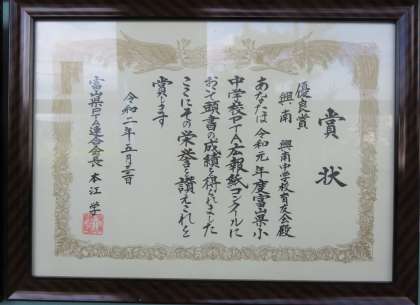 賞状
優良賞
興南 興南中学校育友会殿
あなたは令和元年度富山県小
中学校PTA広報紙コンクールに
おいて頭書の成績を得られました
ここにその栄誉を讃えこれを
賞します
令和二年五月三日
富山県PTA連合会会長 本江 孝一